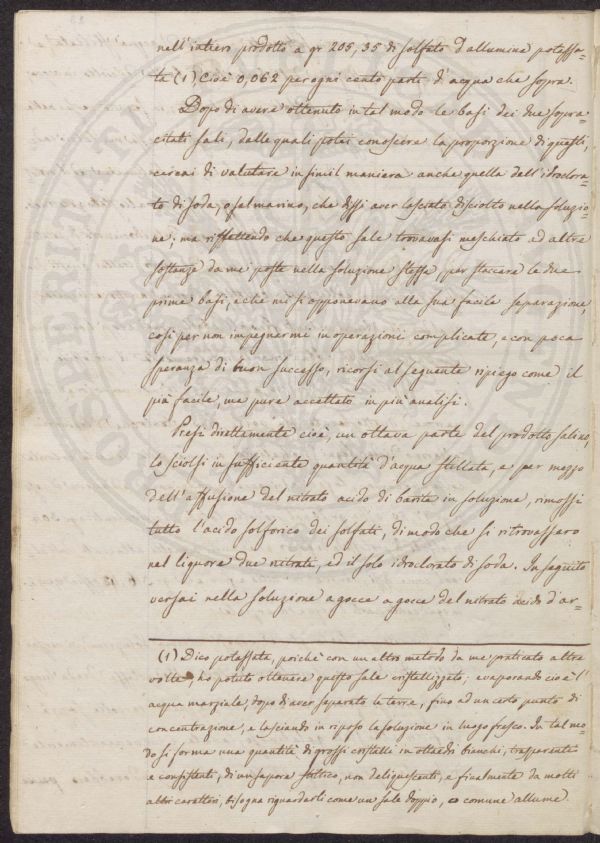 nell'intiero prodotto a gr 205,35 di solfato d'allumina potassa-
ta (1) Cioè 0,062 per ogni cento parti d'acqua che sopra.
Dopo di avere ottenuto in tal modo le basi dei due sopra
citati sali, dalle quali potei conoscere la proporzione di questi,
cercai di valutare in simil maniera anche quella dell'idroclora-
to di soda, o sal marino, che dissi aver lasciato disciolto nella soluzio-
ne; ma riflettendo che questo sale trovavasi meschiato ad altre
sostanze da me poste nella soluzione stessa, per staccare le due
prime basi, e che mi si opponevano alla sua facile separazione,
così per non impegnarmi in operazioni complicate, e con poca
speranza di buon successo, ricorsi al seguente ripiego come il
più facile, ma pure accettato in più analisi.
Presi direttamente cioè, un ottava parte del prodotto salino,
lo sciolsi in sufficiente quantità d'acqua stillata, e per mezzo
dell'affusione del nitrato acido di barite in soluzione, rimossi
tutto l'acido solforico dei solfati, di modo che si ritrovassero
nel liquore due nitrati, ed il solo idroclorato di soda. In seguito
versai nella soluzione a gocce a gocce del nitrato acido d'ar-
(1) Dico potassata, poichè con un altro metodo da me praticato altre
volte, ho potuto ottenere questo sale cristallizzato; evaporando cioè l'
acqua marziale, dopo di aver separato le terre, fino ad un certo punto di
concentrazione, e lasciando in riposo la soluzione in luogo fresco. In tal mo-
do si forma una quantità di grossi cristalli in ottaedri bianchi, trasparenti
e consistenti, di un sapore stittico, non deliquescenti, e finalmente da molti
altri caratteri, bisogna riguardarli come un sale doppio, o comune allume.
PROSPERITATI